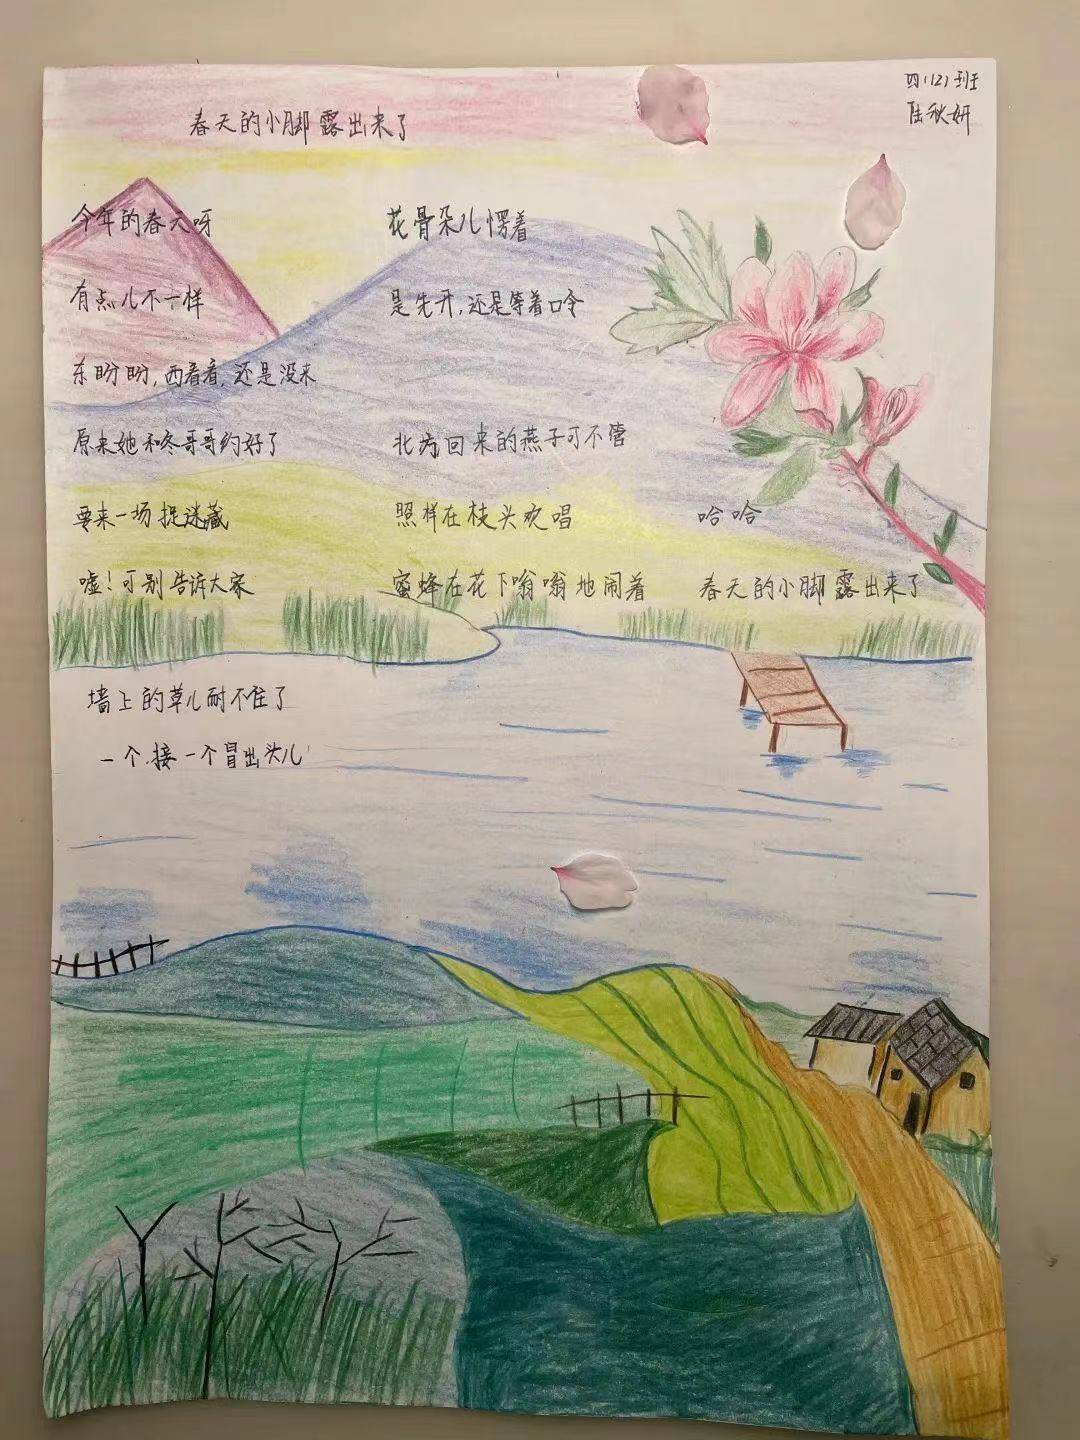 四(12)班
陆秋妍
春天的小脚露出来了
今年的春天呀
有点儿不一样
东盼盼,西看看,还是没来
原来她和冬哥哥约好了
要来一场捉迷藏
嘘!可别告诉大家
墙上的草儿耐不住了
一个接一个冒出头儿
花骨朵儿愣着
是先开,还是等着呤
北方回来的燕子可不管
照样在枝头欢唱
蜜蜂在花下嗡嗡地闹着
哈哈
春天的小脚露出来了